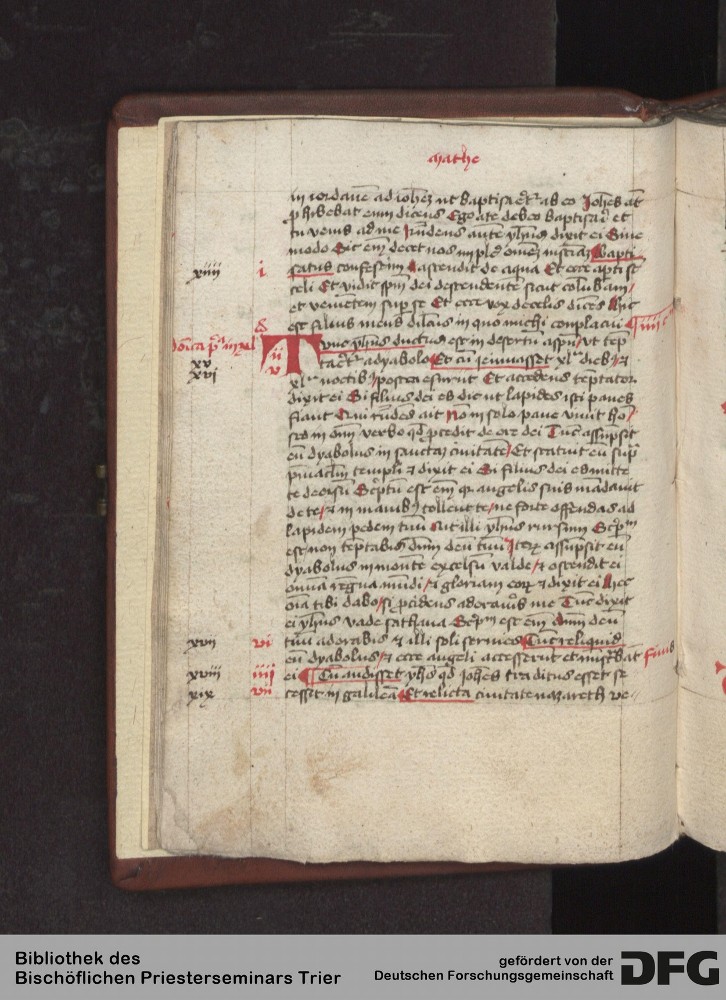 Mathe
in iordane ad iohez ut baptisaret ab eo Johes aut
phibebat eum dicens Ego a te debeo baptisari et
tu venis ad me Rndens aute yhus dixit ei Sine
modo Sic em decet nos implere omez iusticiaz Bapti
xiiii i satus confestim ascendit de aqua Et ecce apti st
celi Et vidit spm dei descendente sicut colubam
et veniete sup se Et ecce vox de celis dices Hic
est filius meus dilcus in quo michi complacui iiii c
Tunc yhus ductus est in desertu a spu ut tep
taret a dyabolo Et cu ieiunasset xl dieb et
xv
xvi
xl noctib postea esurut Et accedens teptator
dixit ei Si filius dei es dic ut lapides isti panes
fiant Qui rndes ait No in solo pane vivit ho
sed in omi verbo qd pcedit de ore dei Tuc assupsit
eu dyabolus in sanctaz civitate Et statuit eu supra
pinaclm templi et dixit ei Si filius dei es mitte
te deorsu Scptu est em qr angelis suis madavit
de te et in manib tollent te ne forte offendas ad
lapidem pedem tuu Ait illi yhus rursum Scptm
est non teptabis dnm deu tuu Iteru assupsit eu
dyabolus in monte excelsu valde et ostendit ei
omnia regna mudi et gloriam eoru et dixit ei Hec
oia tibi dabo si pcidens adoraveris me Tuc dixit
ei yhus vade sathana Scptm est em dnm deu
xvii vi tuu adorabis et illi soli servies Tuc reliquid
eu dyabolus et ecce angeli accesserut et mistrabat
xviii iiii ei Cu audisset yhs qd Johes traditus esset se
xix vii cessit in galilea Et relicta civitate nazareth ve-
Bibliothek des
Bischöflichen Priesterseminars Trier
gefördert von der
Deutschen Forschungsgemeinschaft
DFG